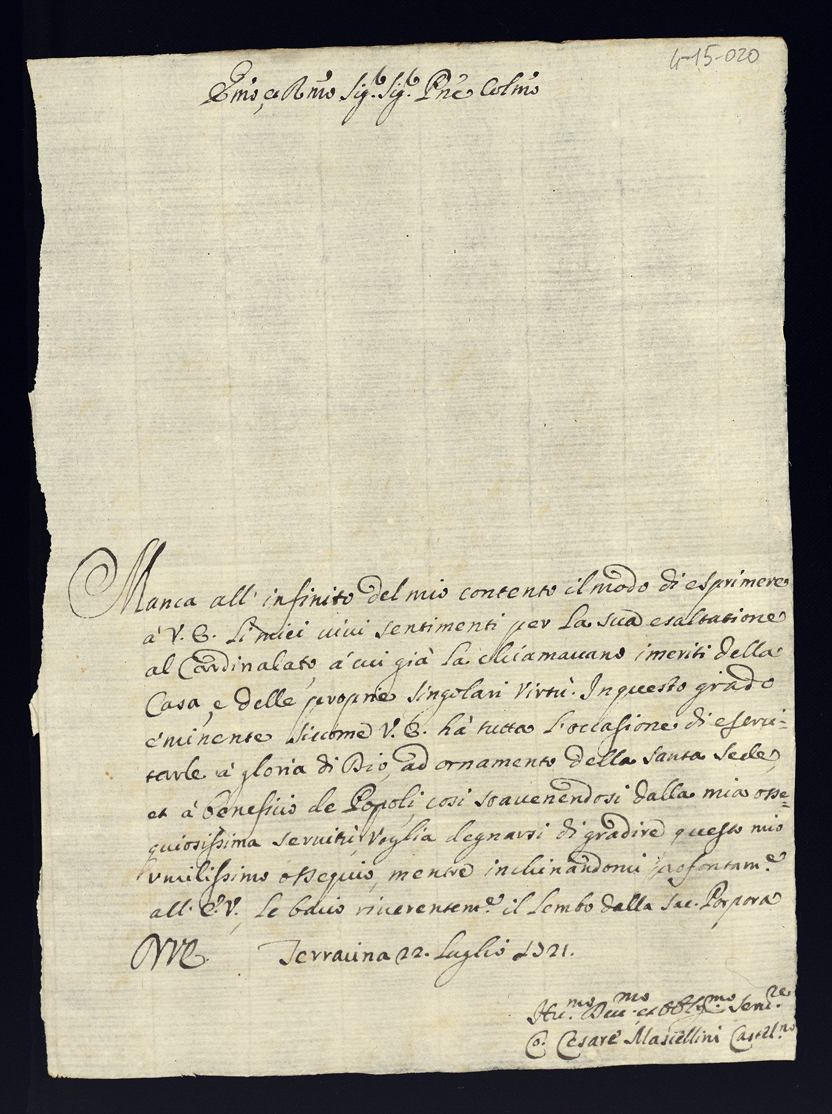 4-15-020
Emo, et Rmo Sig.r Sig.r Pne Colmo
Manca all' infinito del mio contento il modo di esprimere
à V. E. li miei uiui sentimenti per la sua esaltatione
al Cardinalato, à cui già la chiamauano i meriti della
Casa, e delle proprie singolari virtù. In questo grado
eminente siccome V. E. hà tutta l'occasione di eserci=
tarle à gloria di Dio, ad ornamento della Santa Sede,
et à beneficio de Popoli, così souuenendosi dalla mia osse=
quiosissima seruitù, Voglia degnarsi di gradire questo mio
vmilissimo ossequio, mentre inchinandomi profontam.e
all' E. V., le bacio riuerentem.e il lembo della Sac. Porpora
VVE. Terracina 22. Luglio 1721.
Hu.mo Diu.mo et obblig.mo Seru.re
Co. Cesare Mastellini Castel.no